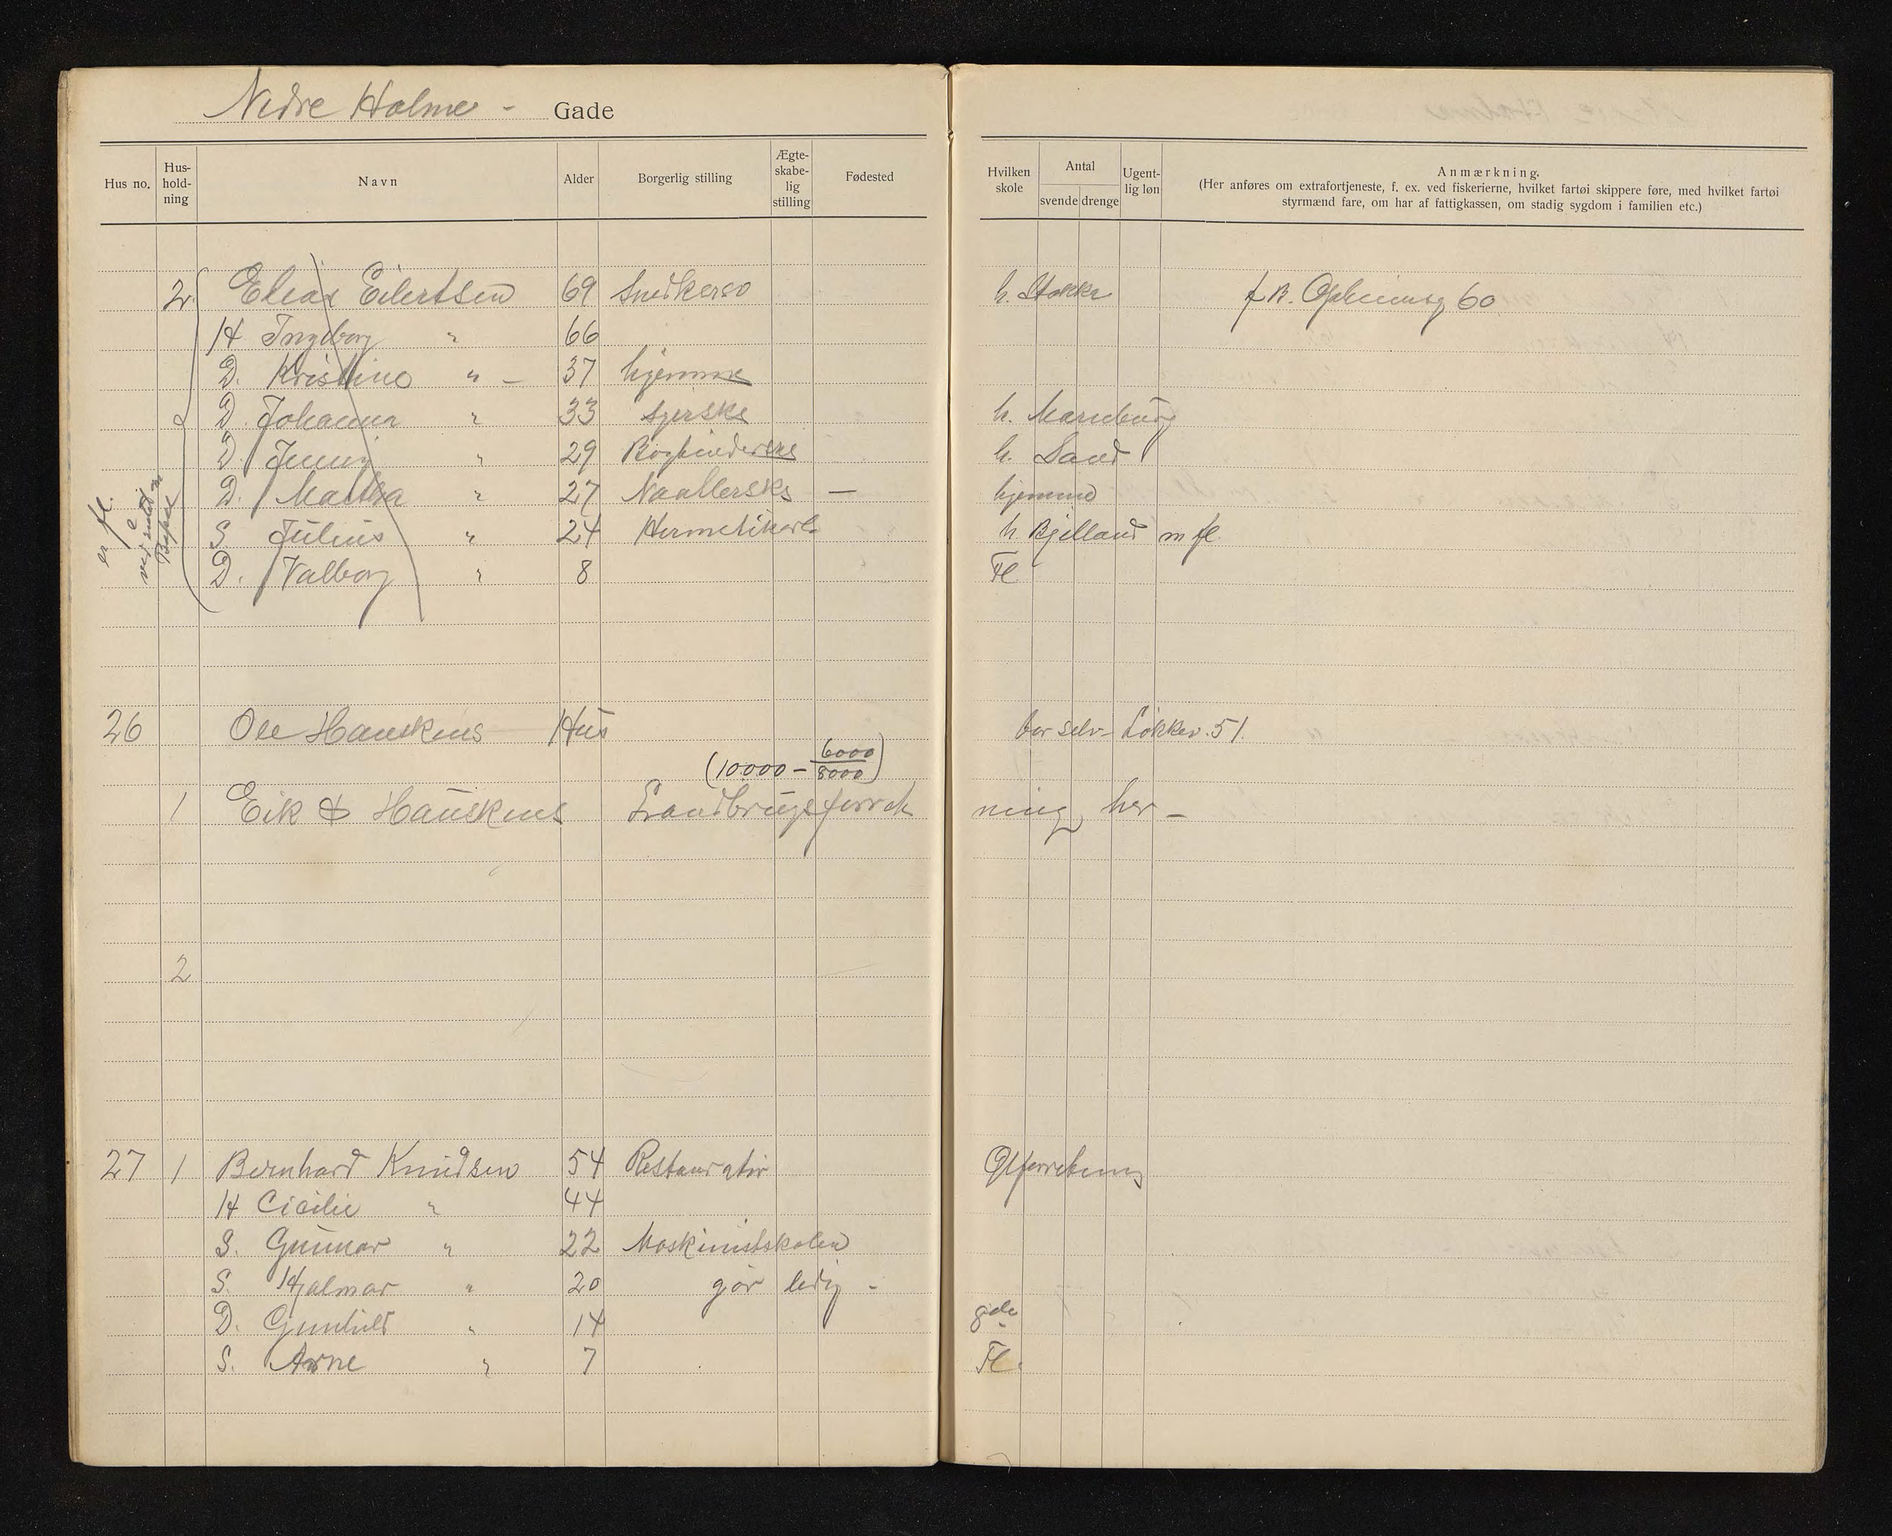 Nedre Holme - Gade
Hus no. Hus-hold-ning Navn Alder Borgerlig stilling Ægte-skabe-lig stilling Fødested Hvilken skole Antal svende drenge Ugent-lig løn Anmærkning.
(Her anføres om extrafortjeneste, f. ex. ved fiskerierne, hvilket fartøi skippere føre, med hvilket fartøi
styrmænd fare, om har af fattigkassen, om stadig sygdom i familien etc.)
2 Elias Eilertsen 69 Snedker h. Stokke f B. Opheimsg 60
H Ingeborg " 66
D. Kristine " - 37 hjemme
D. Johanna " 33 Syerske h. Marnburg
D. Jenny " 29 Bogbinderske h. Sand
D. Martha " 27 Naallerske - hjemme
S Julius " 24 Hermetikarb. h Bjelland m fl.
D. Valborg " 8 Fl
er fl.
26 Ole Hauskens Hus bor selv - Løkkev. 51.
(10000 - 6000 8000)
1 Eik & Hauskens Landbrugsforretning her -
2
27 1 Bernhard Knudsen 54 Restauratør Ølforretning
H Cicilie " 44
S. Gunnar " 22 Maskinistskolen
S. Hjalmar " 20 gør ledig -
D. Gunhild " 14
S. Arne " 7 Fl.